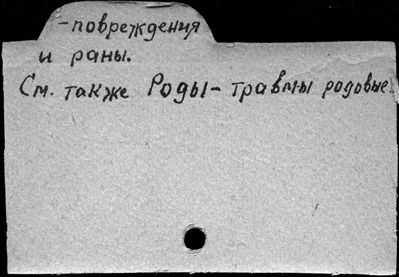 -повреждения
и раны.
См. также Роды-травмы родовые.